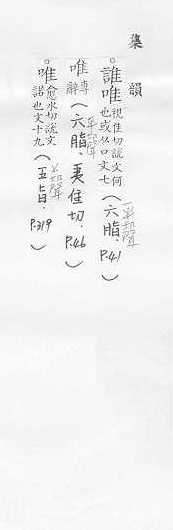 集韻
誰唯 視隹切說文何也或从口文七(六脂.P.41)
唯 專辭(六脂.夷隹切.P.46)
唯 愈水切說文諾也文十九(五旨.P.319)